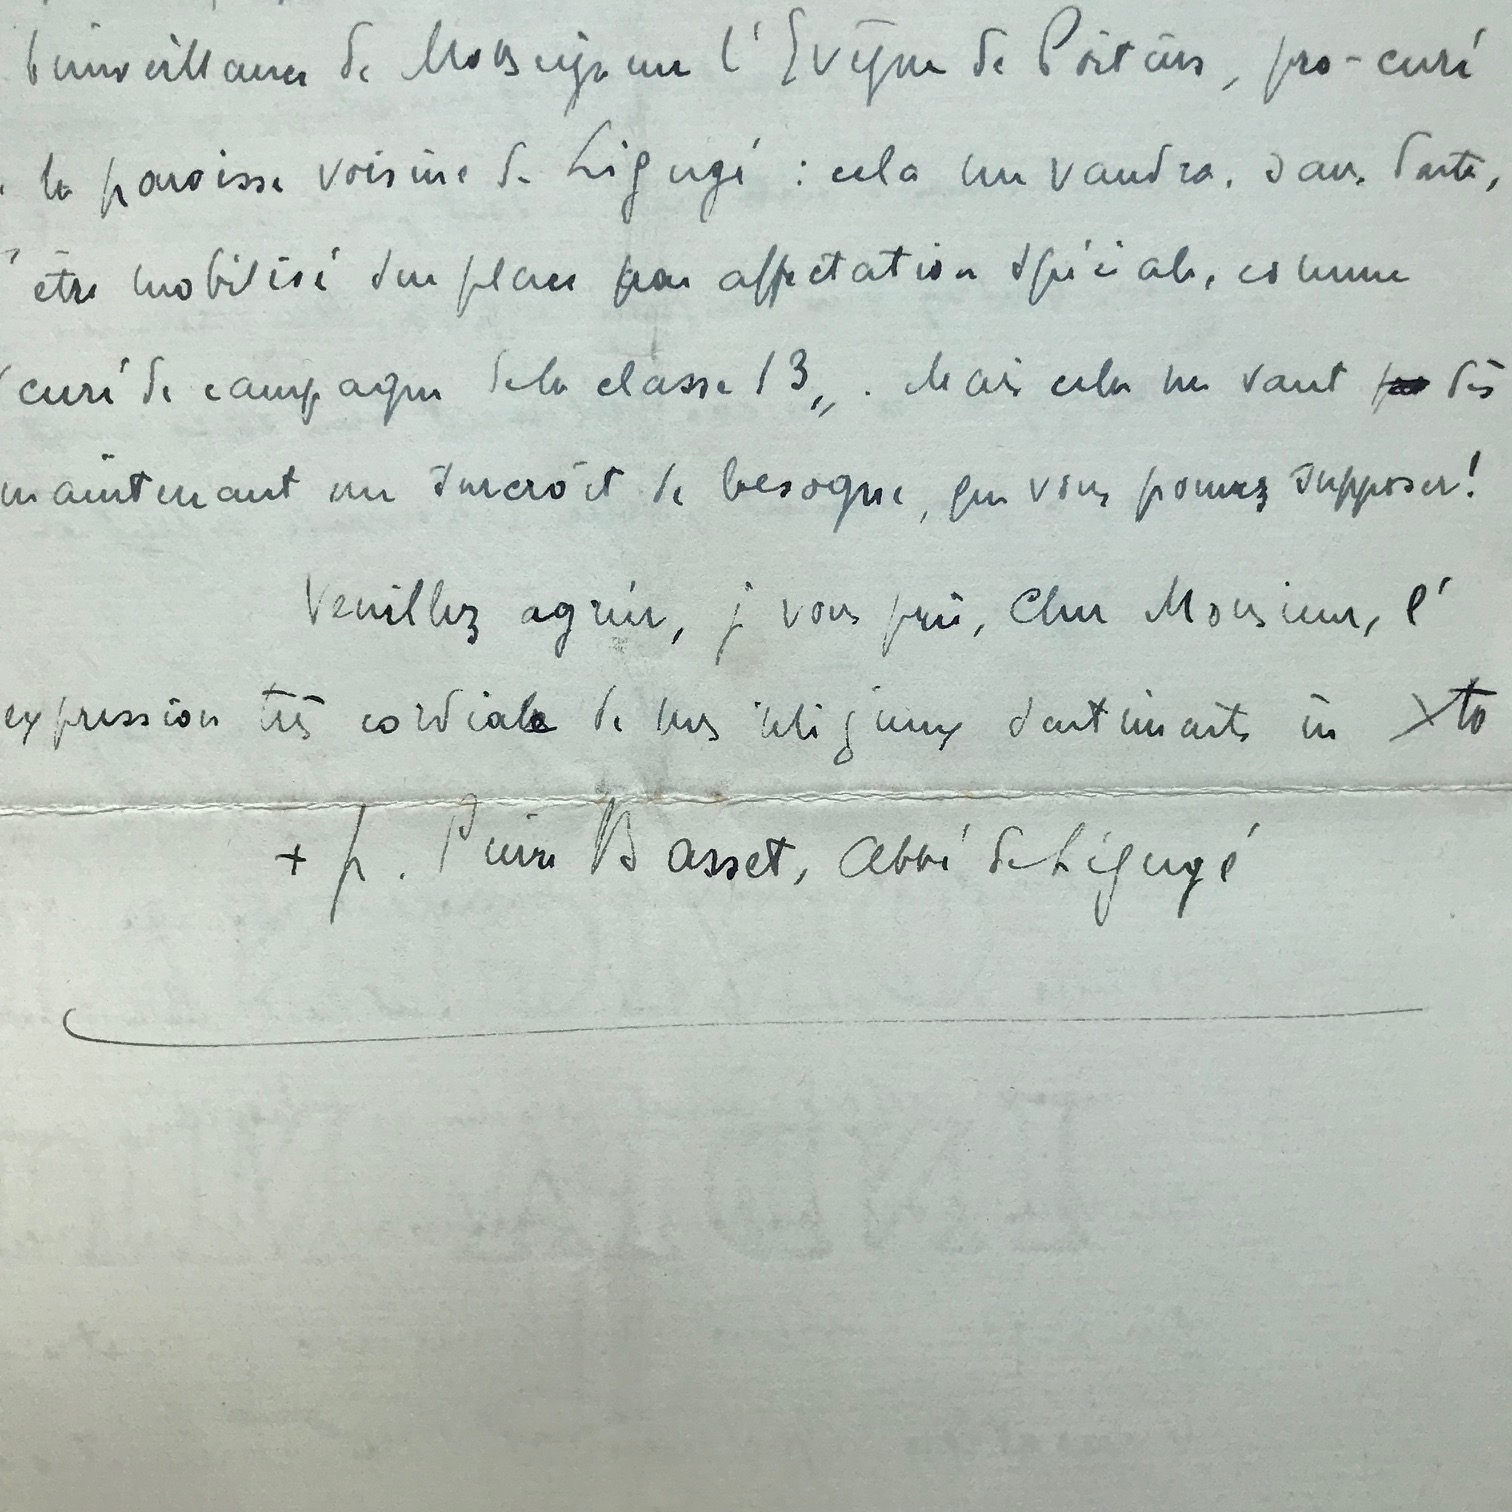 bienveillance de Monseigneur l'Evêque de Poitiers, pro-curé
la paroisse voisine de Ligugé : cela me vaudra, sans doute,
être mobilisé sur place par affectation spéciale, comme
curé de campagne de la classe 13„. Mais cela me vaut dès
maintenant un surcroît de besogne, que vous pouvez supposer!
Veuillez agréer, je vous prie, Cher Monsieur, l'
expression très cordiale de mes religieux sentiments in Xto
+ fr. Pierre Basset, Abbé de Ligugé